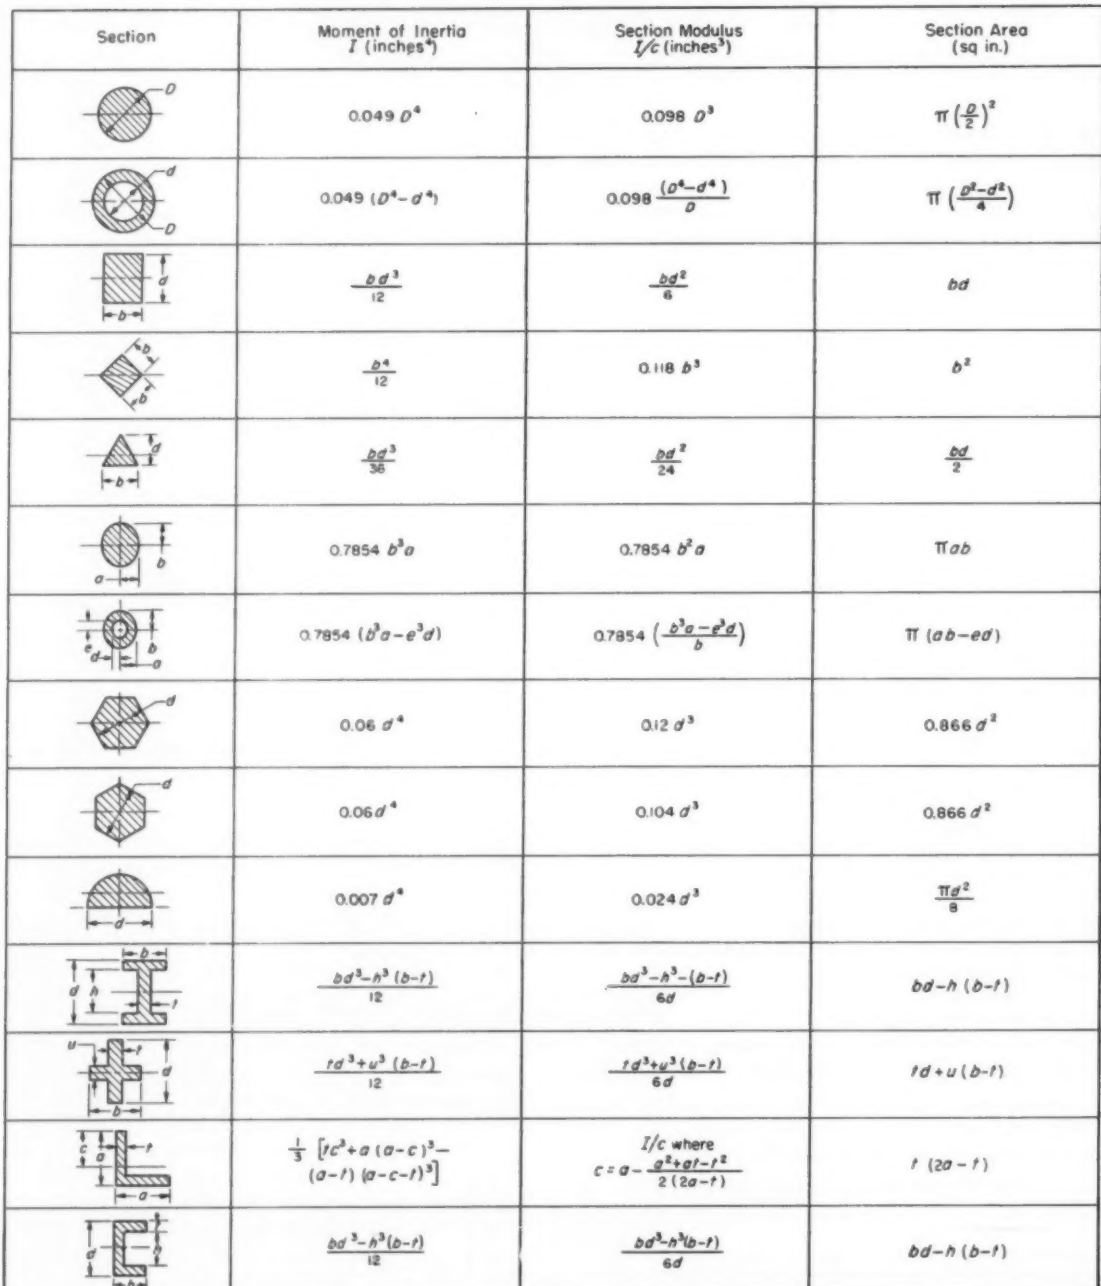 Section
Moment of Inertia
I (inches⁴)
Section Modulus
I/c (inches³)
Section Area
(sq in.)
D
0.049 D⁴
0.098 D³
π (D/2)²
d
D
0.049 (D⁴-d⁴)
0.098 (D⁴-d⁴)/D
π (D²-d²/4)
d
b
bd³/12
bd²/6
bd
b
b
b⁴/12
0.118 b³
b²
d
b
bd³/36
bd²/24
bd/2
b
a
0.7854 b³a
0.7854 b²a
πab
e
d
b
a
0.7854 (b³a-e³d)
0.7854 (b³a-e³d/b)
π (ab-ed)
d
0.06 d⁴
0.12 d³
0.866 d²
d
0.06 d⁴
0.104 d³
0.866 d²
d
0.007 d⁴
0.024 d³
πd²/8
b
d
h
t
bd³-h³ (b-t)/12
bd³-h³-(b-t)/6d
bd-h (b-t)
u
t
d
b
td³+u³ (b-t)/12
td³+u³ (b-t)/6d
td+u (b-t)
c
a
t
a
1/3 [tc³+a (a-c)³-
(a-t) (a-c-t)³]
I/c where
c = a- a²+at-t²/2 (2a-t)
t (2a-t)
d
t
h
b
bd³-h³(b-t)/12
bd³-h³(b-t)/6d
bd-h (b-t)